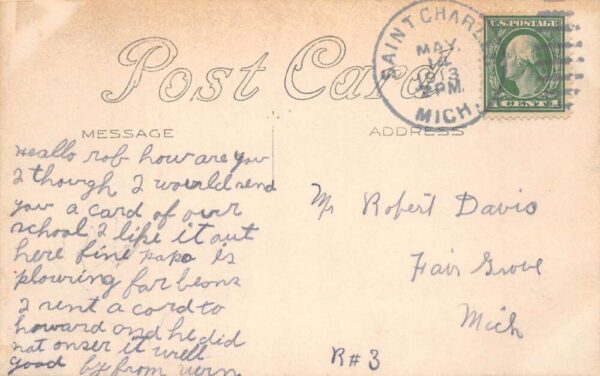 Post Card
SAINT CHARLES
MAY.
14
1913
2 PM.
MICH.
U.S. POSTAGE
1 CENT 1
MESSAGE
ADDRESS
Heallo rob how are you
I though I woould send
you a card of over
school I like it out
here fine papa is
plouring far beans
I sent a card to
howard and he did
not onser it well
good by from vern
Mr Robert Davis
Fair Grove
Mich
R#3